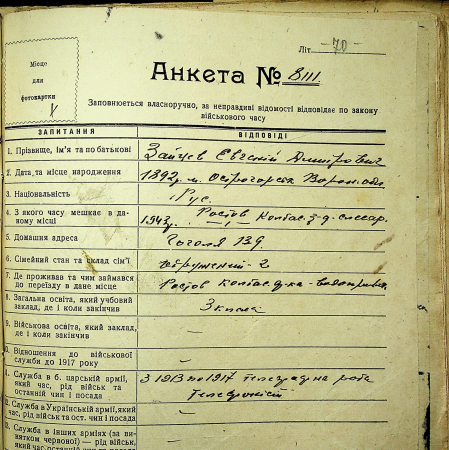 Літ. 70
Місце
для
фотокартки
Анкета № 8111
Заповнюється власноручно, за неправдиві відомості відповідає по закону
військового часу
ЗАПИТАННЯ ВІДПОВІДІ
1. Прізвище, ім'я та по батькові Зайцев Евгений Дмитрович
2. Дата та місце народження 1892 м. Острогорск Ворон. обл.
3. Національність Рус.
4. З якого часу мешкає в даному місці 1943 р. Ростов Колбас. ф-ка слесар.
5. Домашня адреса Гоголя 139
6. Сімейний стан та склад сім'ї 2
7. Де проживав та чим займався
до переїзду в дане місце Ростов Колбас. ф-ка
8. Загальна освіта, який учбовий
заклад, де і коли закінчив 3 класа
9. Військова освіта, який заклад,
де і коли закінчив —
Відношення до військової
служби до 1917 року —
Служба в б. царській армії, З 1913 по 1917
який час, рід військ та
останній чин і посада Телефоніст
Служба в Українській армії, який
час, рід військ та ост. чин і посада —
Служба в інших арміях (за винятком
червоної) — рід військ,
який час, останній чин та посада —